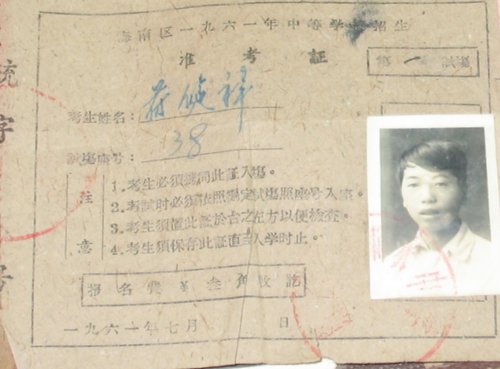 海南区一九六一年中等学校招生
准考証
第一試場
考生姓名：
試場座号：138
注意
1.考生必须携同此証入場。
2.考試时必须依照規定試場照座号入座。
3.考生须置此証於台之左方以便检查。
4.考生须保存此証直至入学时止。
报名費壹叁角收訖
一九六一年七月 日
统
字